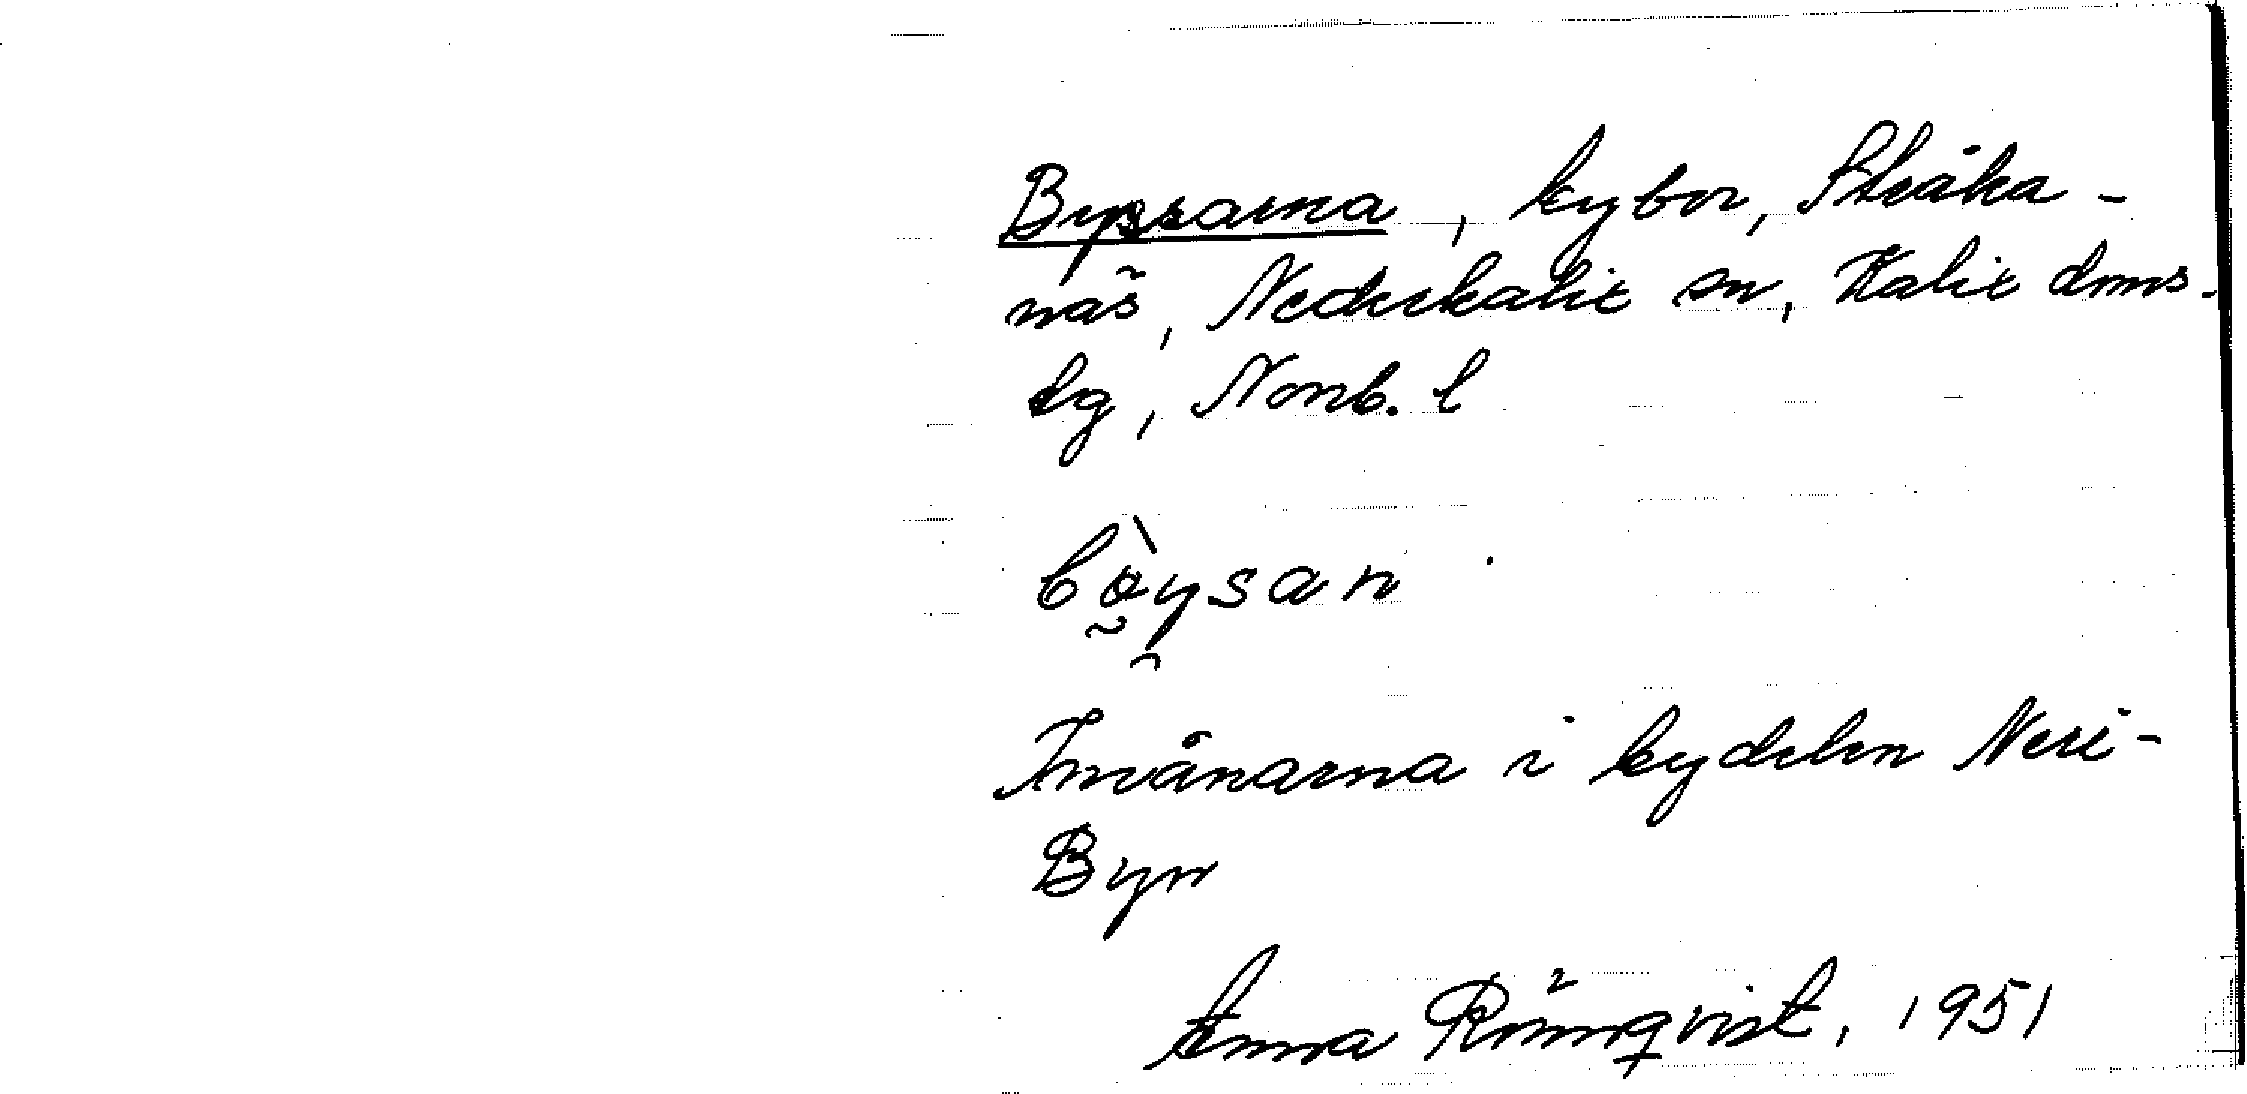 Byssarna, bybor, Stråka-
näs, Nederkalix sn, Kalix doms-
lg, Norrb. l
bò̰ysan
Invånarna i bydelen Neri-
Byn
Anna Rönnqvist, 1951